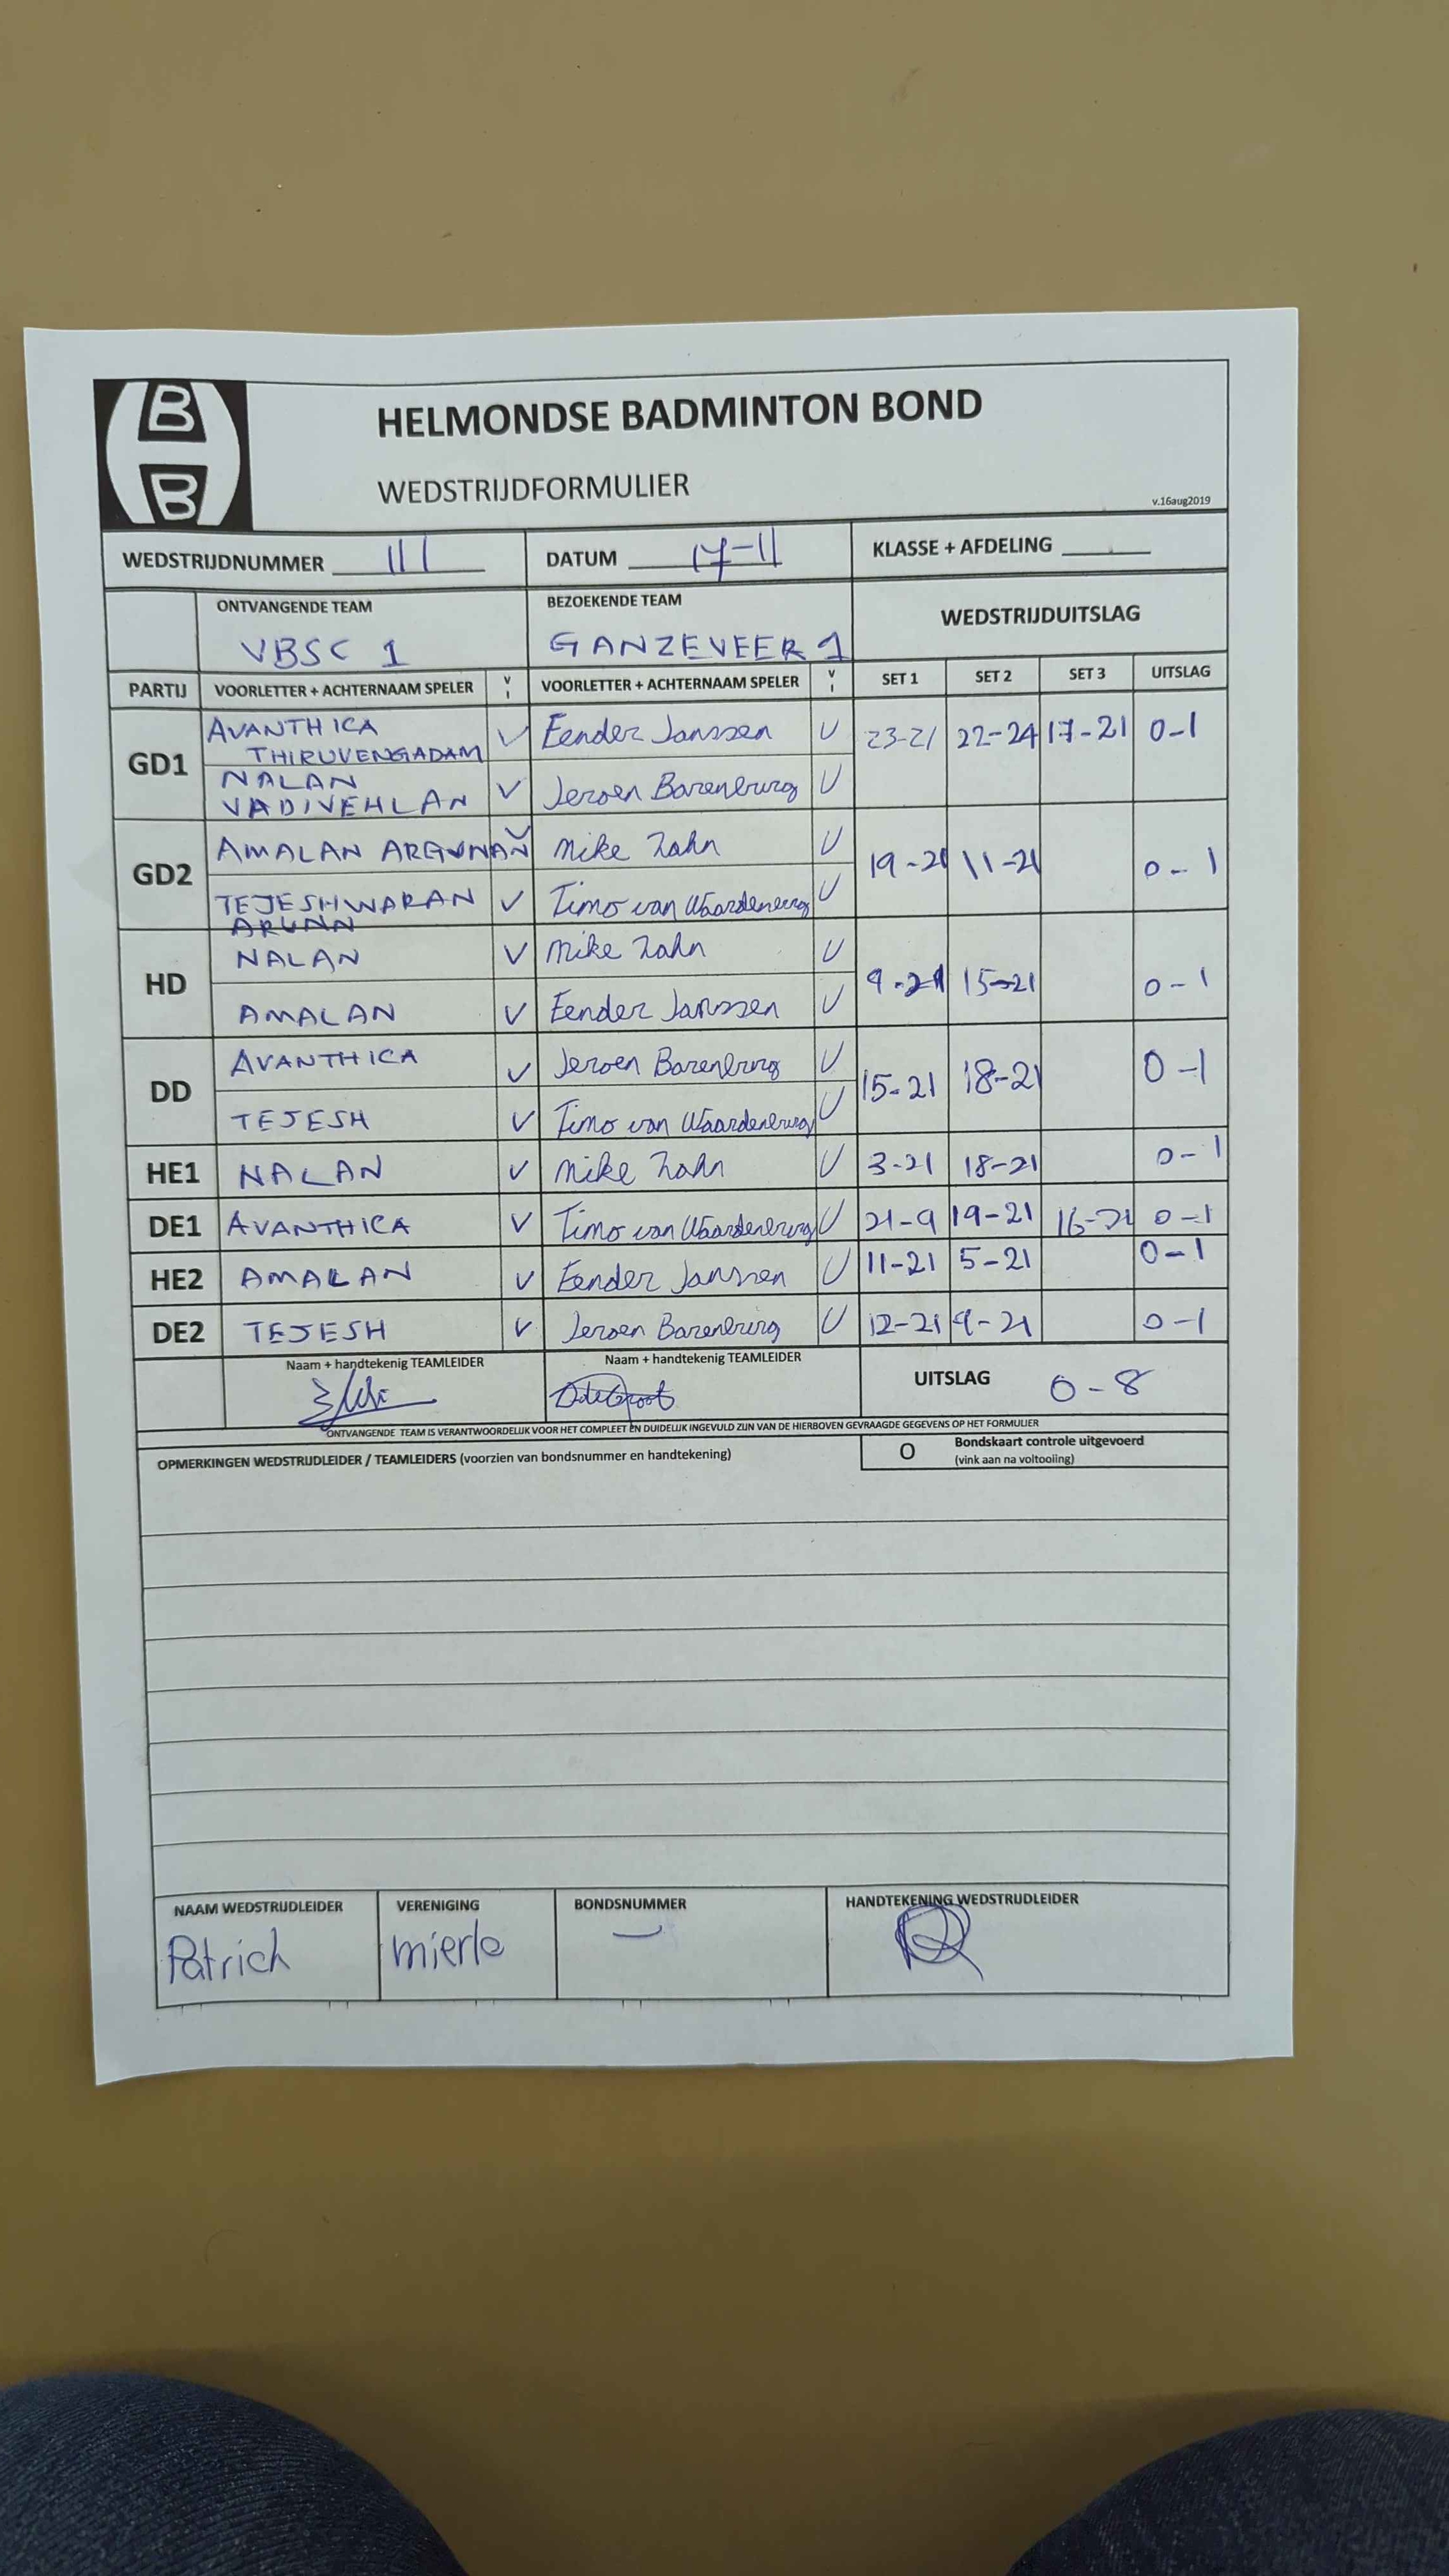 B
B
HELMONDSE BADMINTON BOND
WEDSTRIJDFORMULIER
v.16aug2019
WEDSTRIJDNUMMER 111 DATUM 17-11 KLASSE + AFDELING
ONTVANGENDE TEAM BEZOEKENDE TEAM WEDSTRIJDUITSLAG
VBSC 1 GANZEVEER 1
PARTIJ VOORLETTER + ACHTERNAAM SPELER V I VOORLETTER + ACHTERNAAM SPELER V I SET 1 SET 2 SET 3 UITSLAG
GD1 AVANTHICA THIRUVENGADAM V Eender Janssen V 23-21 22-24 17-21 0-1
NALAN VADIVEHLAN V Jeroen Barenburg V
GD2 AMALAN ARGUNAN V Mike Zahn V 19-21 11-21 0-1
TEJESHWARAN ARUNN V Timo van Waardenburg V
HD NALAN V Mike Zahn V 9-21 15-21 0-1
AMALAN V Eender Janssen V
DD AVANTHICA V Jeroen Barenburg V 15-21 18-21 0-1
TEJESH V Timo van Waardenburg V
HE1 NALAN V Mike Zahn V 3-21 18-21 0-1
DE1 AVANTHICA V Timo van Waardenburg V 21-9 19-21 16-21 0-1
HE2 AMALAN V Eender Janssen V 11-21 5-21 0-1
DE2 TEJESH V Jeroen Barenburg V 12-21 9-21 0-1
Naam + handtekenig TEAMLEIDER Naam + handtekenig TEAMLEIDER UITSLAG 0-8
ONTVANGENDE TEAM IS VERANTWOORDELIJK VOOR HET COMPLEET EN DUIDELIJK INGEVULD ZIJN VAN DE HIERBOVEN GEVRAAGDE GEGEVENS OP HET FORMULIER
OPMERKINGEN WEDSTRIJDLEIDER / TEAMLEIDERS (voorzien van bondsnummer en handtekening) O Bondskaart controle uitgevoerd
(vink aan na voltooiing)
NAAM WEDSTRIJDLEIDER VERENIGING BONDSNUMMER HANDTEKENING WEDSTRIJDLEIDER
Patrich mierlo —